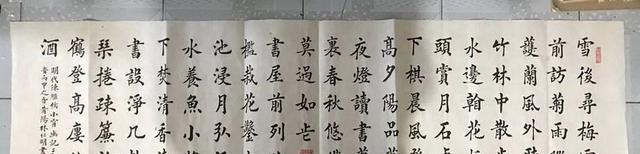 雪後尋梅
前訪菊雨
護蘭風外
竹林中散
水邊翰花
頭賞月石
下棋晨風
高夕陽品
夜燈讀書
裏春秋悠
莫過如此
書屋前列
檻栽花鑿
池浸月引
水養魚小
下焚清香
書設淨几
琴捲疎簾
鶴登高廔
酒
明代陳繼儒小窗幽記